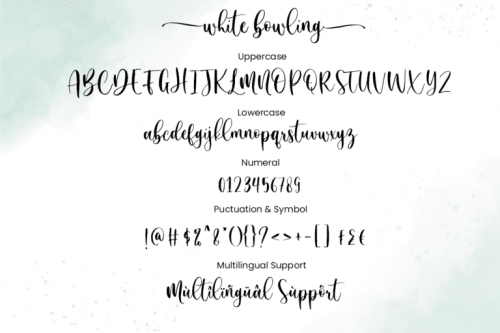 white bowling
Uppercase
ABCDEFGHIJKLMNOPQRSTUVWXYZ
Lowercase
abcdefgijklmnopqrstuvwxyz
Numeral
0123456789
Puctuation & Symbol
!@#$%^&*(){}?<>+-[] ƒ£€
Multilingual Support
Mùltílïñgüâl Sùppôrt